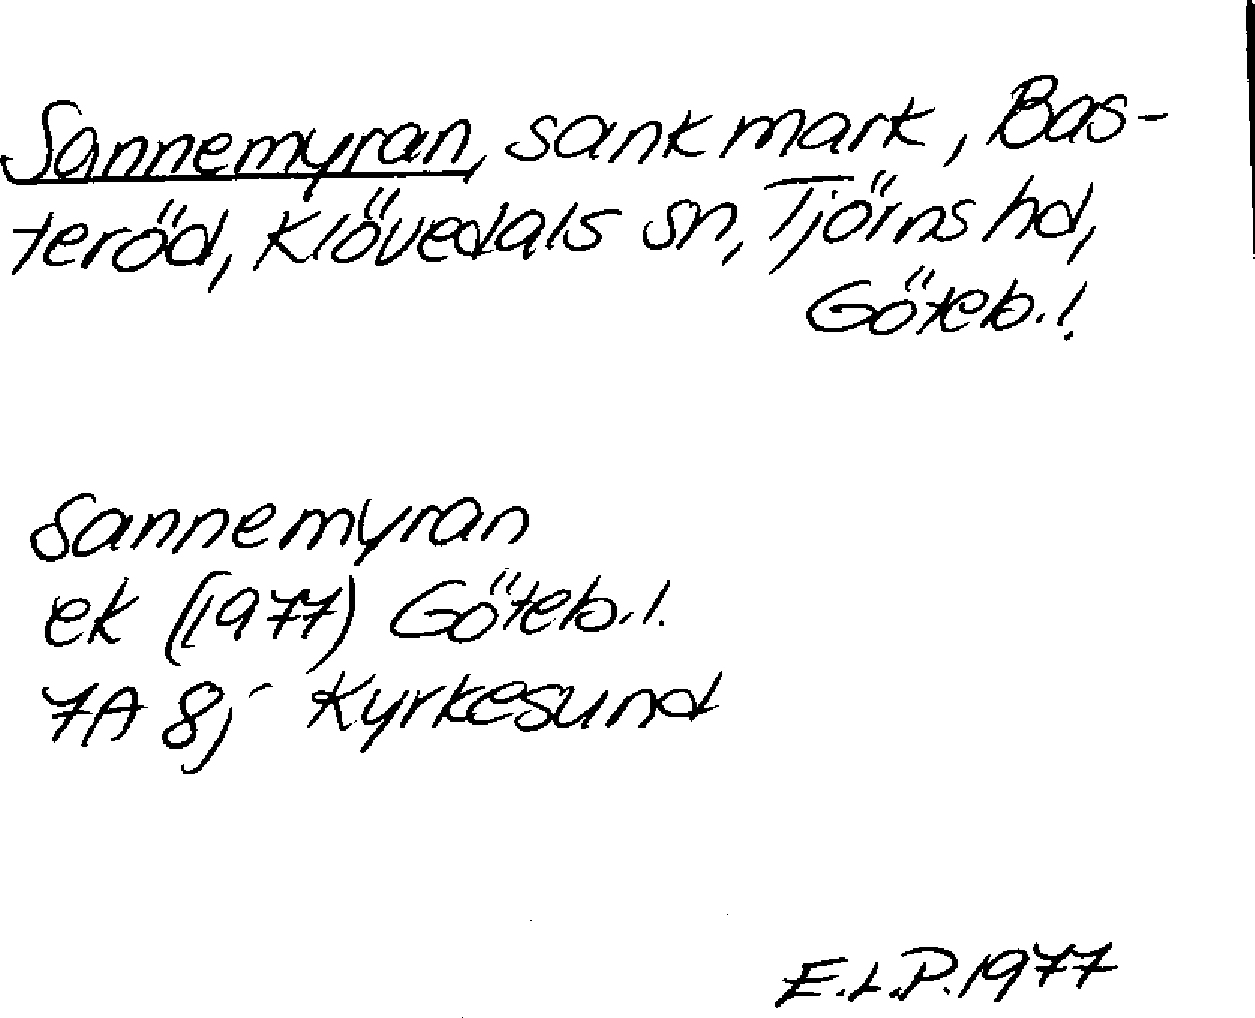 Sannemyran, sank mark, Bas-
teröd, Klövedals sn, Tjörns hd,
Göteb. l.
Sannemyran
ek (1977) Göteb. l.
7A 8j Kyrkesund
E.L.P. 1977